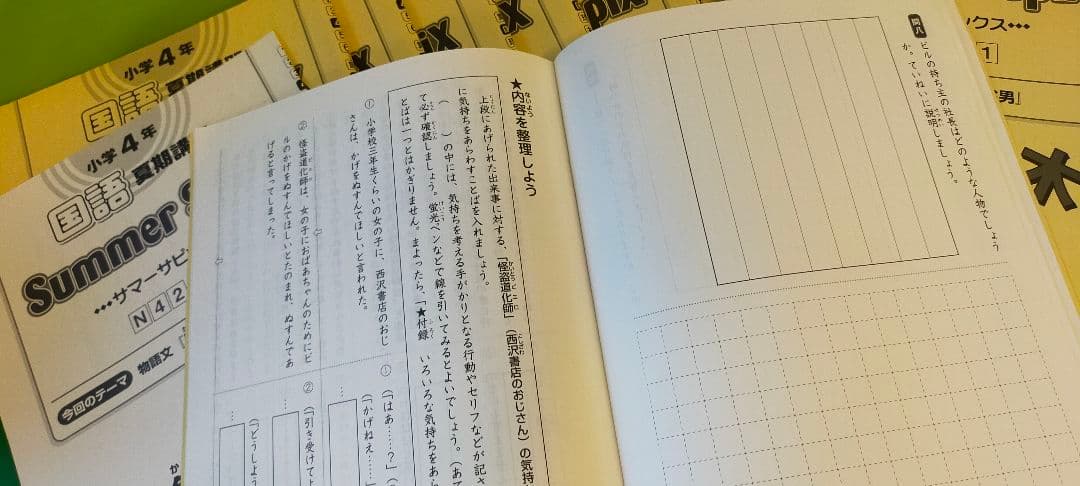 問八
ビルの持ち主の社長はどのような人物でしょう
か。ていねいに説明しましょう。
★内容を整理しよう
上段にあげられた出来事に対する、「怪盗道化師」(西沢書店のおじさん)の気持
に気持ちをあらわすことばを入れましょう。
( )の中には、気持ちを考える手がかりとなる行動やセリフなどが記さ
て必ず確認しましょう。蛍光ペンなどで線を引いてみるとよいでしょう。(あて
とばは一つとはかぎりません。まよったら、「★付録 いろいろな気持ちをあら
① 小学校三年生くらいの女の子に、西沢書店のおじ
さんは、かげをぬすんでほしいと言われた。
② 怪盗道化師は、女の子におばあちゃんのためにビ
ルのかげをぬすんでほしいとたのまれ、ぬすんであ
げると言ってしまった。
①(「はあ……?」
(「かげねえ……
②(「引き受けて
(「どうしよう
小学4年
国語
夏期講
小学4年
国語
夏期講
Summer
…サマーサピ
N42
今回のテーマ
物語文
pix
ックス…
1
男』
木